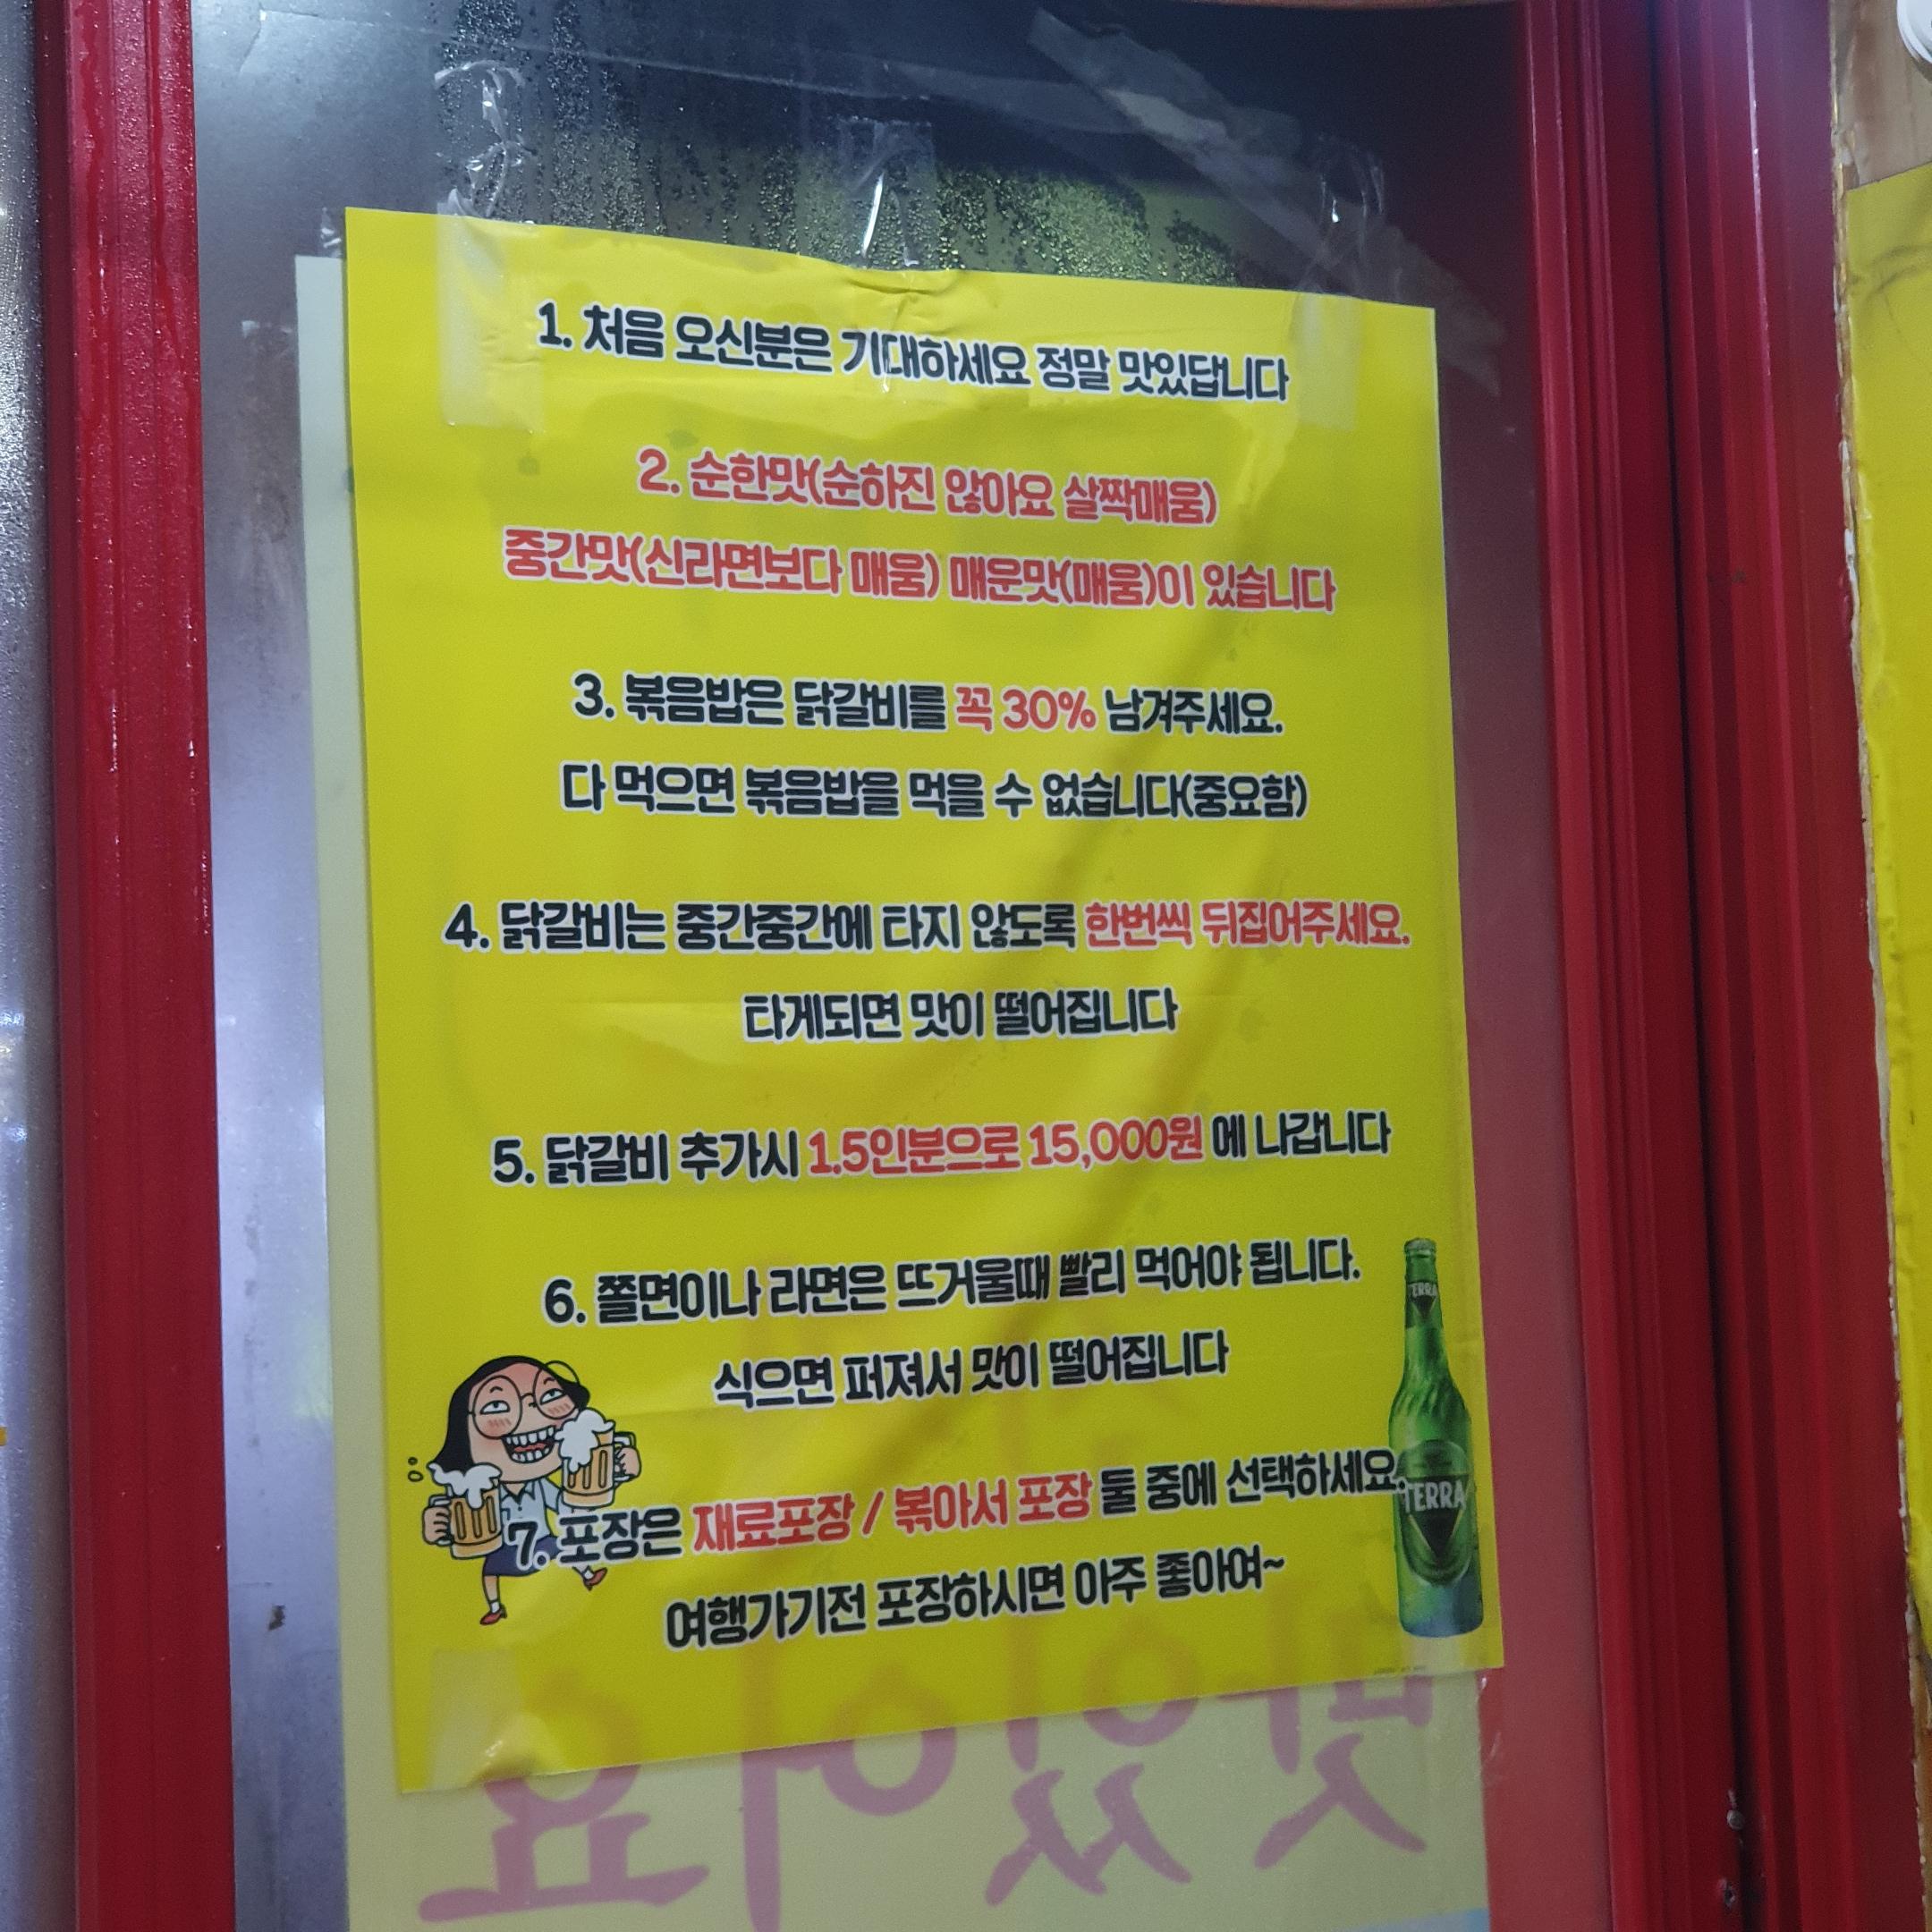 1. 처음 오신분은 기대하세요 정말 맛있답니다
2. 순한맛(순하진 않아요 살짝매움)
중간맛(신라면보다 매움) 매운맛(매움)이 있습니다
3. 볶음밥은 닭갈비를 꼭 30% 남겨주세요.
다 먹으면 볶음밥을 먹을 수 없습니다(중요함)
4. 닭갈비는 중간중간에 타지 않도록 한번씩 뒤집어주세요.
타게되면 맛이 떨어집니다
5. 닭갈비 추가시 1.5인분으로 15,000원 에 나갑니다
6. 쫄면이나 라면은 뜨거울때 빨리 먹어야 됩니다.
식으면 퍼져서 맛이 떨어집니다
TERRA
7. 포장은 재료포장 / 볶아서 포장 둘 중에 선택하세요.
TERRA
여행가기전 포장하시면 아주 좋아여~
맛있어요